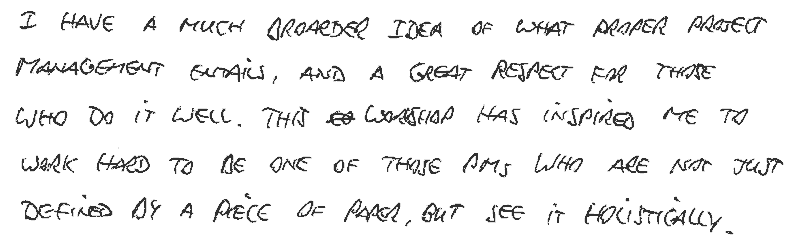 I HAVE A MUCH BROARDER IDEA OF WHAT PROPER PROJECT
MANAGEMENT ENTAILS, AND A GREAT RESPECT FOR THOSE
WHO DO IT WELL. THIS WORKSHOP HAS INSPIRED ME TO
WORK HARD TO BE ONE OF THOSE PMS WHO ARE NOT JUST
DEFINED BY A PIECE OF PAPER, BUT SEE IT HOLISTICALLY.